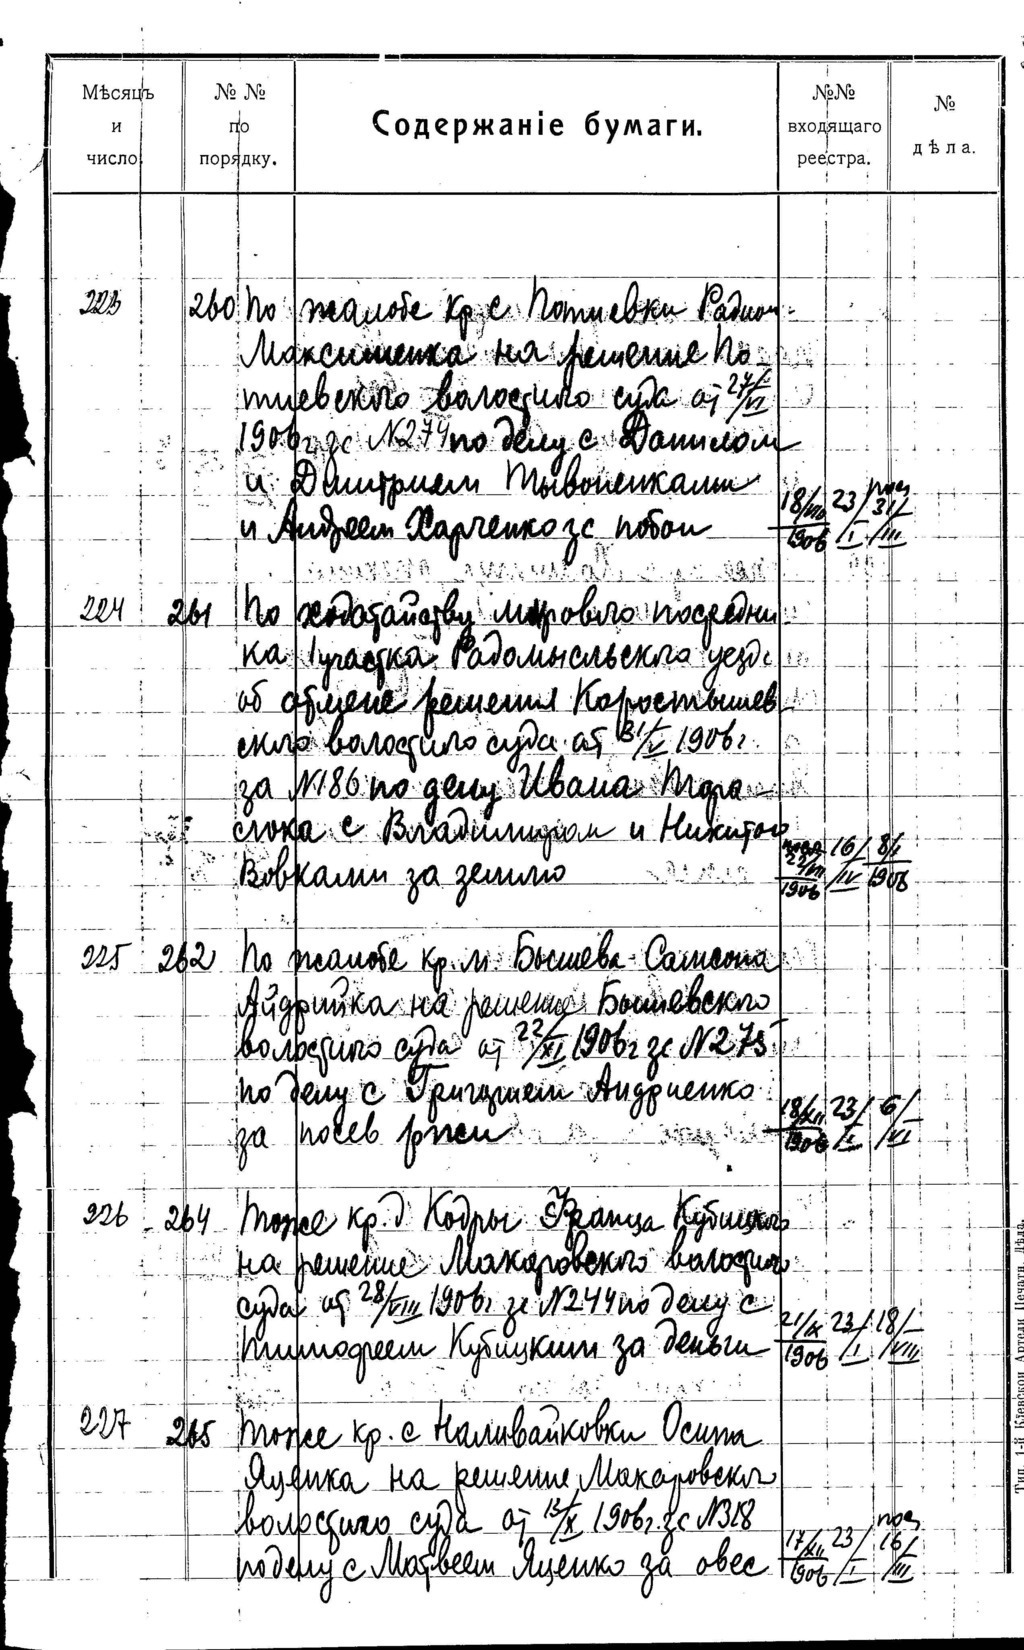 Мѣсяцъ и число
№ № по порядку.
Содержаніе бумаги.
№№ входящаго реестра.
№ дѣла.
223 260 По жалобе кр. с Потиевки Радион
Максименка на решение По-
тиевского волостного суда от 27/VI
1906 г за №274 по делу с Данилом
и Дмитрием Тывоненками
и Андреем Харченко за побои 18/VIII 1906 23/I 31/III
224 261 По ходатайству мирового посредни
ка 1 участка Радомысльского уезда
об отмене решения Коростышев
ского волостного суда от 31/V 1906 г.
за №186 по делу Ивана Тара
сюка с Владимиром и Никитою
Вовками за землю 22/VII 1906 16/IV 8/I 1908
225 262 По жалобе кр. м. Бышева Самсона
Айдрийка на решение Бышевского
волостного суда от 22/XI 1906 г за №275
по делу с Григорием Андриенко
за посев ржи 18/XII 1906 23/I 6/VI
226 264 Тоже кр. д Кодры Франца Кубицкого
на решение Макаровского волостного
суда от 28/VIII 1906 г за №244 по делу с
Тимофеем Кубицким за деньги 21/IX 1906 23/I 18/VIII
227 265 Тоже кр. с Наливайковки Осипа
Яценка на решение Макаровског
волостного суда от 13/X 1906 г. за №318
по делу с Матвеем Яценко за овес 17/XII 1906 23/I 16/III
Тип. 1-й Кіевской Артели Печатн. Дѣла.